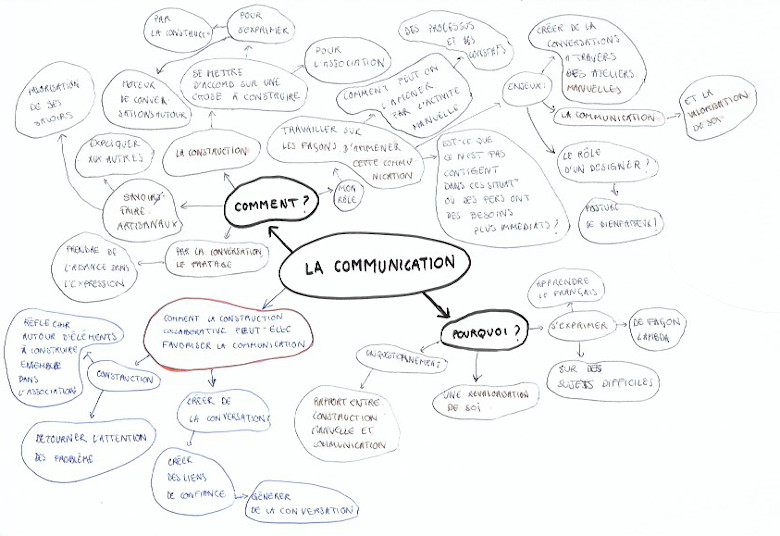 PAR
LA CONSTRUCT°
POUR
S'EXPRIMER
MOTEUR
DE CONVER-
SATIONS AUTOUR
SE METTRE
D'ACCORD SUR UNE
CHOSE À CONSTRUIRE
POUR
L'ASSOCIATION
VALORISATION
DE SES
SAVOIRS
EXPLIQUER
AUX AUTRES
LA CONSTRUCTION
SAVOIRS-
FAIRE
ARTISANAUX
COMMENT ?
PRENDRE DE
L'AISANCE DANS
L'EXPRESSION
PAR LA CONVERSATION,
LE PARTAGE
MON
RÔLE
TRAVAILLER SUR
LES FAÇONS D'AMMENER
CETTE COMMU-
NICATION
COMMENT PEUT-ON
L'AMENER
PAR L'ACTIVITÉ
MANUELLE
DES PROCESSUS
ET DES
ENJEUX:
CRÉER DE LA
CONVERSATIONS
À TRAVERS
DES ATELIERS
MANUELLES
LA COMMUNICATION
ET LA
VALORISATION
DE SOI
LE RÔLE
D'UN DESIGNER ?
POSTURE
DE BIENFAITEUR !
EST-CE QUE
CE N'EST PAS
CONTIGENT
DANS CES SITUAT°
OÙ DES PERS ONT
DES BESOINS
PLUS IMMÉDIATS ?
LA COMMUNICATION
POURQUOI ?
S'EXPRIMER
APPRENDRE
LE FRANÇAIS
DE FAÇON
LAMBDA
SUR DES
SUJETS DIFFICILES
UNE REVALORISATION
DE SOI
UN QUESTIONNEMENT
RAPPORT ENTRE
CONSTRUCTION
MANUELLE ET
COMMUNICATION
COMMENT LA CONSTRUCTION
COLLABORATIVE PEUT-ELLE
FAVORISER LA COMMUNICATION
RÉFLECHIR
AUTOUR D'ÉLÉMENTS
À CONSTRUIRE
ENSEMBLE
DANS
L'ASSOCIATION
CONSTRUCTION
DÉTOURNER L'ATTENTION
DES PROBLÈME
CRÉER DE
LA CONVERSATION
CRÉER
DES LIENS
DE CONFIANCE
GÉNÉRER
DE LA CONVERSATION